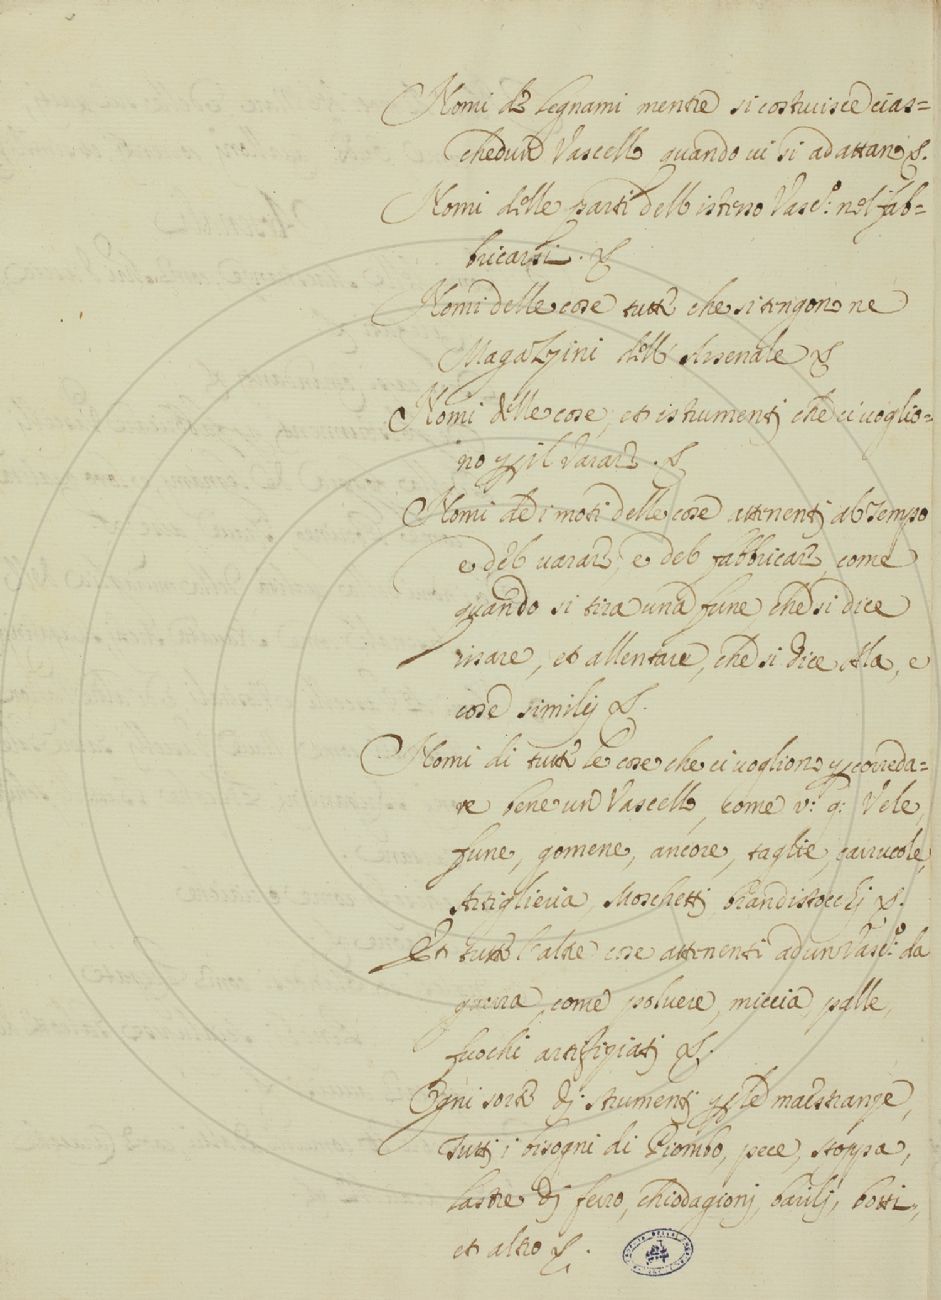 Nomi de legnami mentre si costruisce cias=
chedun Vascello quando vi si adattano &.
Nomi delle parti dell istesso Vasc:º nel fab=
bricarsi. &
Nomi delle cose tutte che si tengono ne
Magazzini dell' Arsenale &
Nomi delle cose, et istrumenti che ci voglio=
no p il Varare. &
Nomi de i moti delle cose attinenti al Tempo
e del varare, e del fabbricare, come
quando si tira una fune, che si dice
issare, et allentare, che si dice Ala, e
cose similij &.
Nomi di tutte le cose che ci vogliono p correda=
re bene un Vascello, come v: g: Vele,
fune, gomene, ancore, taglie, carrucole,
Artiglieria, Moschetti, brandistocchi &.
Et tutte l'altre cose attenenti ad un Vasc:º da
guerra, come polvere, miccia, palle,
fuochi artifiziatj &.
Ogni sorte dj strumentj p le maestranze,
Tuttj i bisogni di Piombo, pece, stoppa,
lastre dj ferro, chiodagionj, barilj, botti,
et altro &.